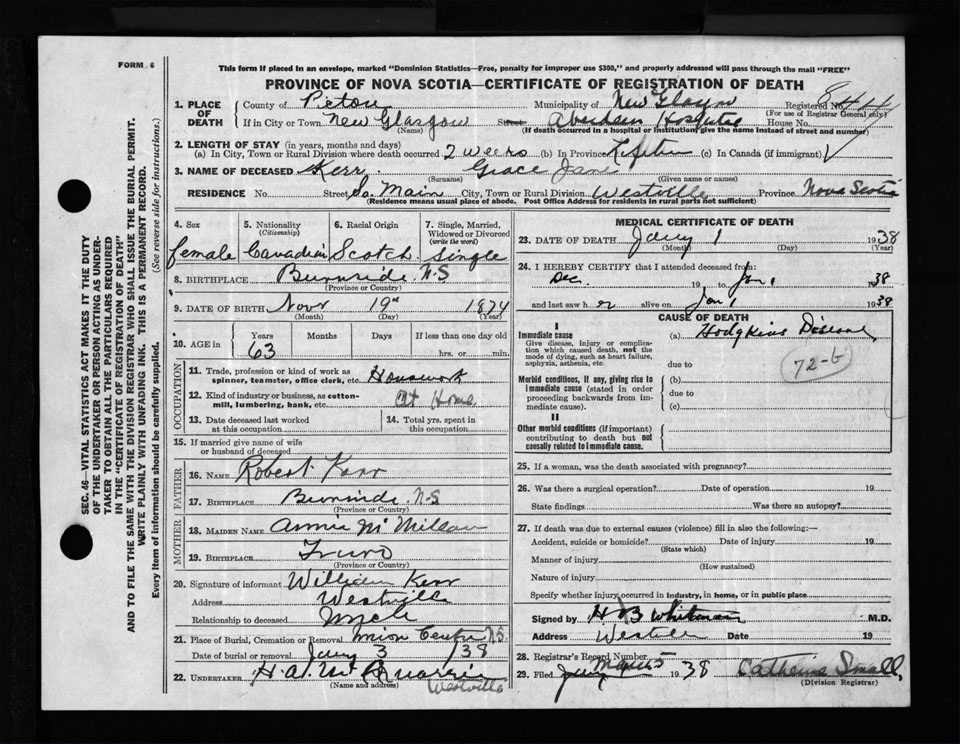 FORM 6
This form if placed in an envelope, marked "Dominion Statistics—Free, penalty for improper use $300," and properly addressed will pass through the mail "FREE"
PROVINCE OF NOVA SCOTIA—CERTIFICATE OF REGISTRATION OF DEATH
844
1. PLACE OF DEATH County of Pictou Municipality of New Glasgow Registered No.
(For use of Registrar General only)
If in City or Town New Glasgow Street Aberdeen Hospital House No.
(Name) (If death occurred in a hospital or institution, give the name instead of street and number)
2. LENGTH OF STAY (in years, months and days)
(a) In City, Town or Rural Division where death occurred 2 weeks (b) In Province Lifetime (c) In Canada (if immigrant)
3. NAME OF DECEASED Kerr Grace Jane
(Surname) (Given name or names)
RESIDENCE No. Street So. Main City, Town or Rural Division Westville Province Nova Scotia
(Residence means usual place of abode. Post Office Address for residents in rural parts not sufficient)
4. Sex 5. Nationality (Citizenship) 6. Racial Origin 7. Single, Married, Widowed or Divorced (write the word)
female Canadian Scotch Single
8. BIRTHPLACE Burnside N.S
(Province or Country)
9. DATE OF BIRTH Novr 19th 1874
(Month) (Day) (Year)
10. AGE in Years Months Days If less than one day old
63 hrs. or min.
OCCUPATION
11. Trade, profession or kind of work as spinner, teamster, office clerk, etc. Housework
12. Kind of industry or business, as cotton-mill, lumbering, bank, etc. At Home
13. Date deceased last worked at this occupation 14. Total yrs. spent in this occupation
15. If married give name of wife or husband of deceased
FATHER
16. NAME Robert Kerr
17. BIRTHPLACE Burnside N-S
(Province or Country)
MOTHER
18. MAIDEN NAME Annie McMillan
19. BIRTHPLACE Truro
(Province or Country)
20. Signature of informant William Kerr
Address Westville
Relationship to deceased Uncle
21. Place of Burial, Cremation or Removal Union Centre N.S.
Date of burial or removal Jany 3 1938
22. UNDERTAKER H. W. McQuarrie
(Name and address) Westville
MEDICAL CERTIFICATE OF DEATH
23. DATE OF DEATH Jany 1 1938
(Month) (Day)
24. I HEREBY CERTIFY that I attended deceased from:
Dec. 19 to Jan 1 1938
and last saw h er alive on Jan 1 1938
CAUSE OF DEATH
I
Immediate cause (a) Hodgkins Disease
Give disease, injury or complication which caused death, not the mode of dying, such as heart failure, asphyxia, asthenia, etc. due to
72-b
Morbid conditions, if any, giving rise to immediate cause (stated in order proceeding backwards from immediate cause). (b)
due to
(c)
II
Other morbid conditions (if important) contributing to death but not causally related to immediate cause.
25. If a woman, was the death associated with pregnancy?
26. Was there a surgical operation? Date of operation 19
State findings Was there an autopsy?
27. If death was due to external causes (violence) fill in also the following:—
Accident, suicide or homicide? Date of injury 19
(State which)
Manner of injury
(How sustained)
Nature of injury
Specify whether injury occurred in industry, in home, or in public place
Signed by H B Whitman M.D.
Address Westville Date 19
28. Registrar's Record Number
29. Filed 1938 Catherine Small
(Division Registrar)
SEC. 46—VITAL STATISTICS ACT MAKES IT THE DUTY
OF THE UNDERTAKER OR PERSON ACTING AS UNDER-
TAKER TO OBTAIN ALL THE PARTICULARS REQUIRED
IN THE "CERTIFICATE OF REGISTRATION OF DEATH"
AND TO FILE THE SAME WITH THE DIVISION REGISTRAR WHO SHALL ISSUE THE BURIAL PERMIT.
WRITE PLAINLY WITH UNFADING INK. THIS IS A PERMANENT RECORD.
Every item of information should be carefully supplied. (See reverse side for instructions.)